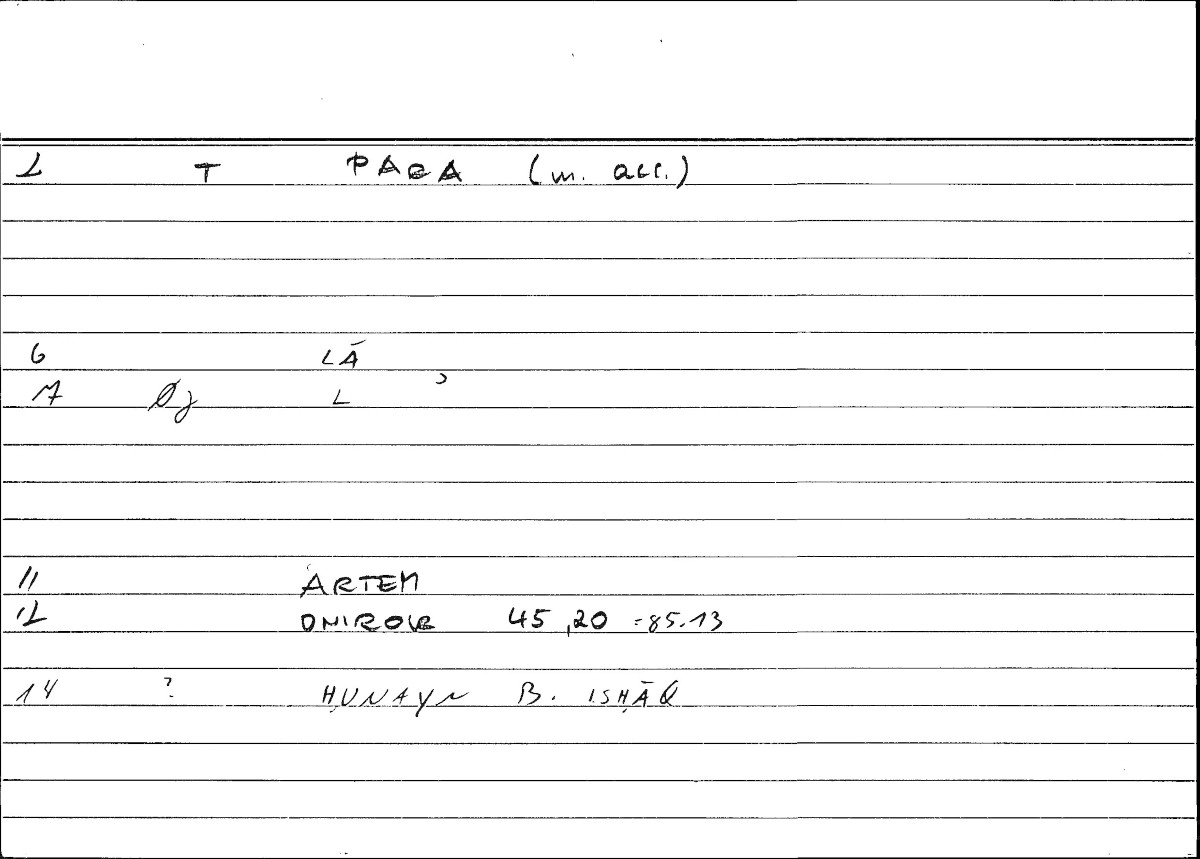 2 T PARA (m. acc.)
6 LĀ
7 Øj L ʾ
11 ARTEM
12 ONIROKR 45,20 = 85.13
14 ? ḤUNAYN B. ISḤĀQ